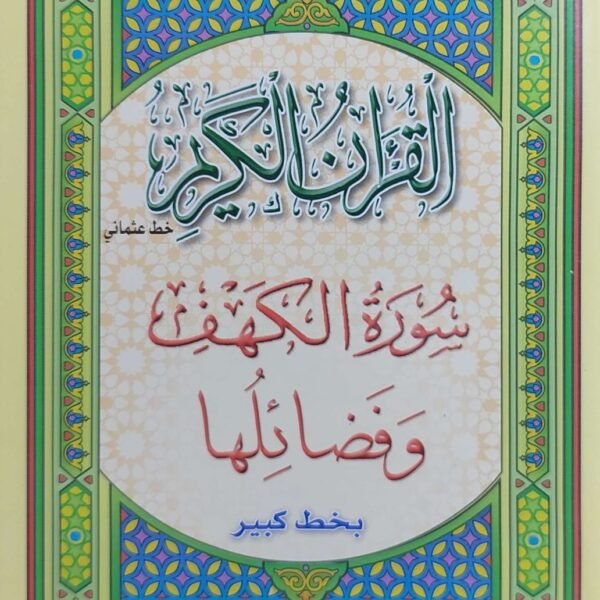 الْقُرْآنُ الْكَرِيمُ
خط عثماني
سُورَةُ الكَهَفِ
وَفَضَائِلُها
بخط كبير